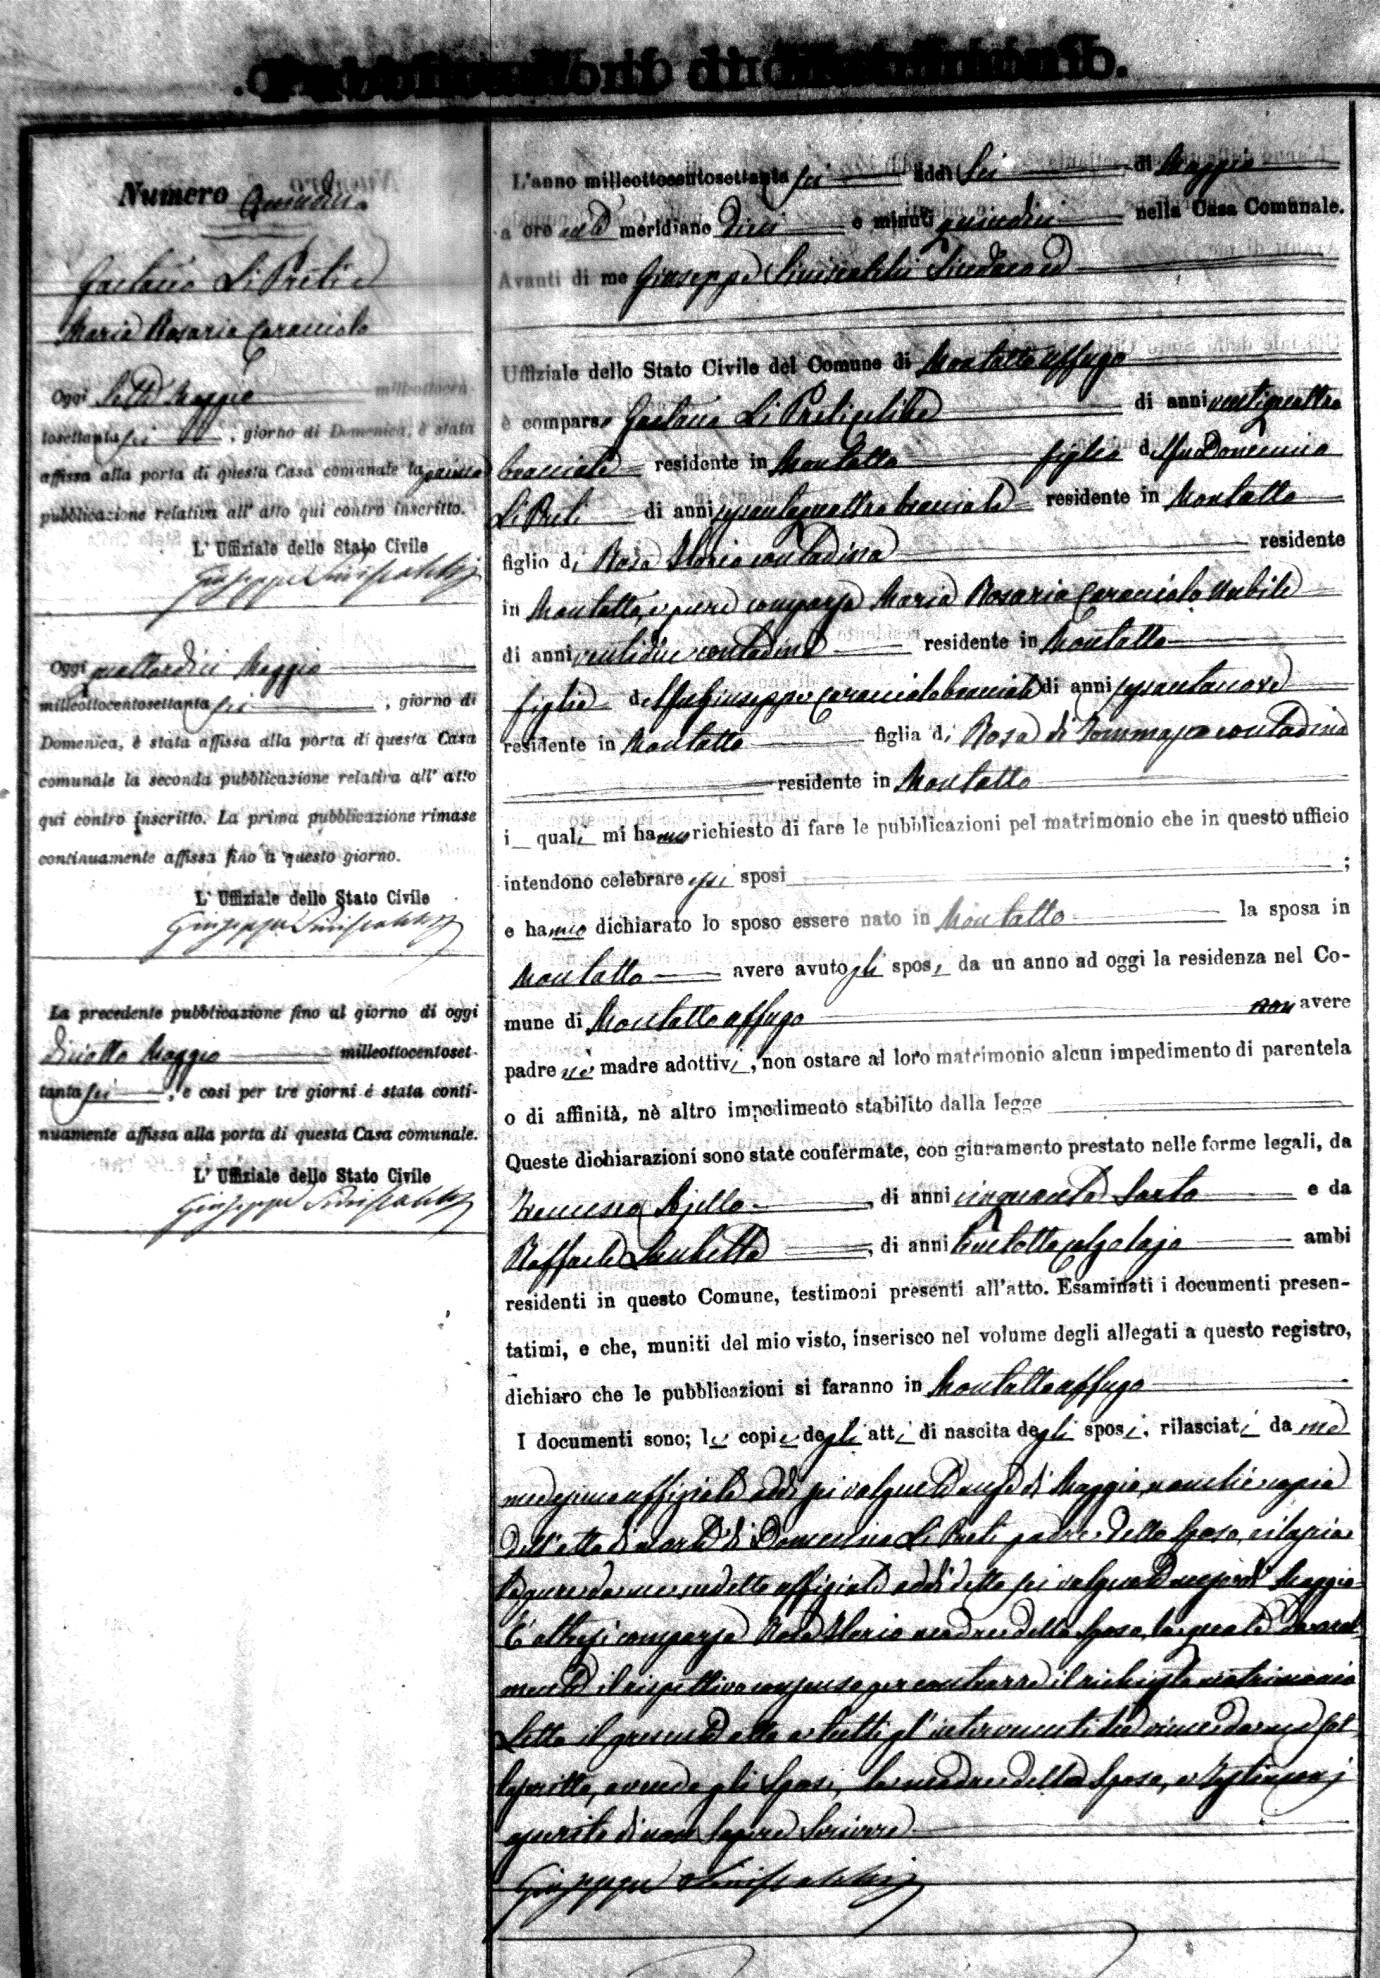 Numero Quindici.
Gaetano Li Preti e
Maria Rosaria Caracciolo
Oggi Sette Maggio milleottocen-
tosettanta sei, giorno di Domenica, è stata
affissa alla porta di questa Casa comunale la prima
pubblicazione relativa all' atto qui contro inscritto.
L' Uffiziale dello Stato Civile
Giuseppe Siniscalchi
Oggi quattordici Maggio
milleottocentosettanta sei, giorno di
Domenica, è stata affissa alla porta di questa Casa
comunale la seconda pubblicazione relativa all' atto
qui contro inscritto. La prima pubblicazione rimase
continuamente affissa fino a questo giorno.
L' Uffiziale dello Stato Civile
Giuseppe Siniscalchi
La precedente pubblicazione fino al giorno di oggi
diciotto Maggio milleottocentoset-
tanta sei, e così per tre giorni è stata conti-
nuamente affissa alla porta di questa Casa comunale.
L' Uffiziale dello Stato Civile
Giuseppe Siniscalchi
L'anno milleottocentosettanta sei addì Sei di Maggio
a ore ante meridiane dieci e minuti quindici nella Casa Comunale.
Avanti di me Giuseppe Siniscalchi Sindaco ed
Uffiziale dello Stato Civile del Comune di Montalto uffugo
è comparso Gaetano Li Preti celibe di anni ventiquattro
bracciale residente in Montalto figlio del fu Domenico
Li Preti di anni sessantaquattro bracciale residente in Montalto
figlio di Rosa Storio contadina residente
in Montalto, e pure comparsa Maria Rosaria Caracciolo Nubile
di anni ventidue contadina residente in Montalto
figlia del fu Giuseppe Caracciolo bracciale di anni sessantanove
residente in Montalto figlia di Rosa di Tommaso contadina
residente in Montalto
i quali mi hanno richiesto di fare le pubblicazioni pel matrimonio che in questo ufficio
intendono celebrare essi sposi ;
e hanno dichiarato lo sposo essere nato in Montalto la sposa in
Montalto avere avuto gli sposi da un anno ad oggi la residenza nel Co-
mune di Montalto uffugo non avere
padre nè madre adottivi, non ostare al loro matrimonio alcun impedimento di parentela
o di affinità, nè altro impedimento stabilito dalla legge
Queste dichiarazioni sono state confermate, con giuramento prestato nelle forme legali, da
Francesco Ajello, di anni cinquanta Sarto e da
Raffaele, di anni trentotto calzolajo ambi
residenti in questo Comune, testimoni presenti all'atto. Esaminati i documenti presen-
tatimi, e che, muniti del mio visto, inserisco nel volume degli allegati a questo registro,
dichiaro che le pubblicazioni si faranno in Montalto uffugo.
I documenti sono; le copie degli atti di nascita degli sposi, rilasciati da me
medesimo uffiziale addì sei volgente mese di Maggio, nonchè copia
dell'atto di morte di Domenico Li Preti padre dello Sposo, rilascia
ta pure da me sudetto uffiziale addì detto sei volgente mese di Maggio
È altresì comparsa Rosa Storio madre dello Sposo, la quale
mente il rispettivo consenso per contrarre il richiesto matrimonio
Letto il presente atto a tutti gl'intervenuti si è vien da me sot
toscritto, avendo gli Sposi, la madre dello Sposo, e testimonj
asserito di non sapere Scrivere
Giuseppe Siniscalchi